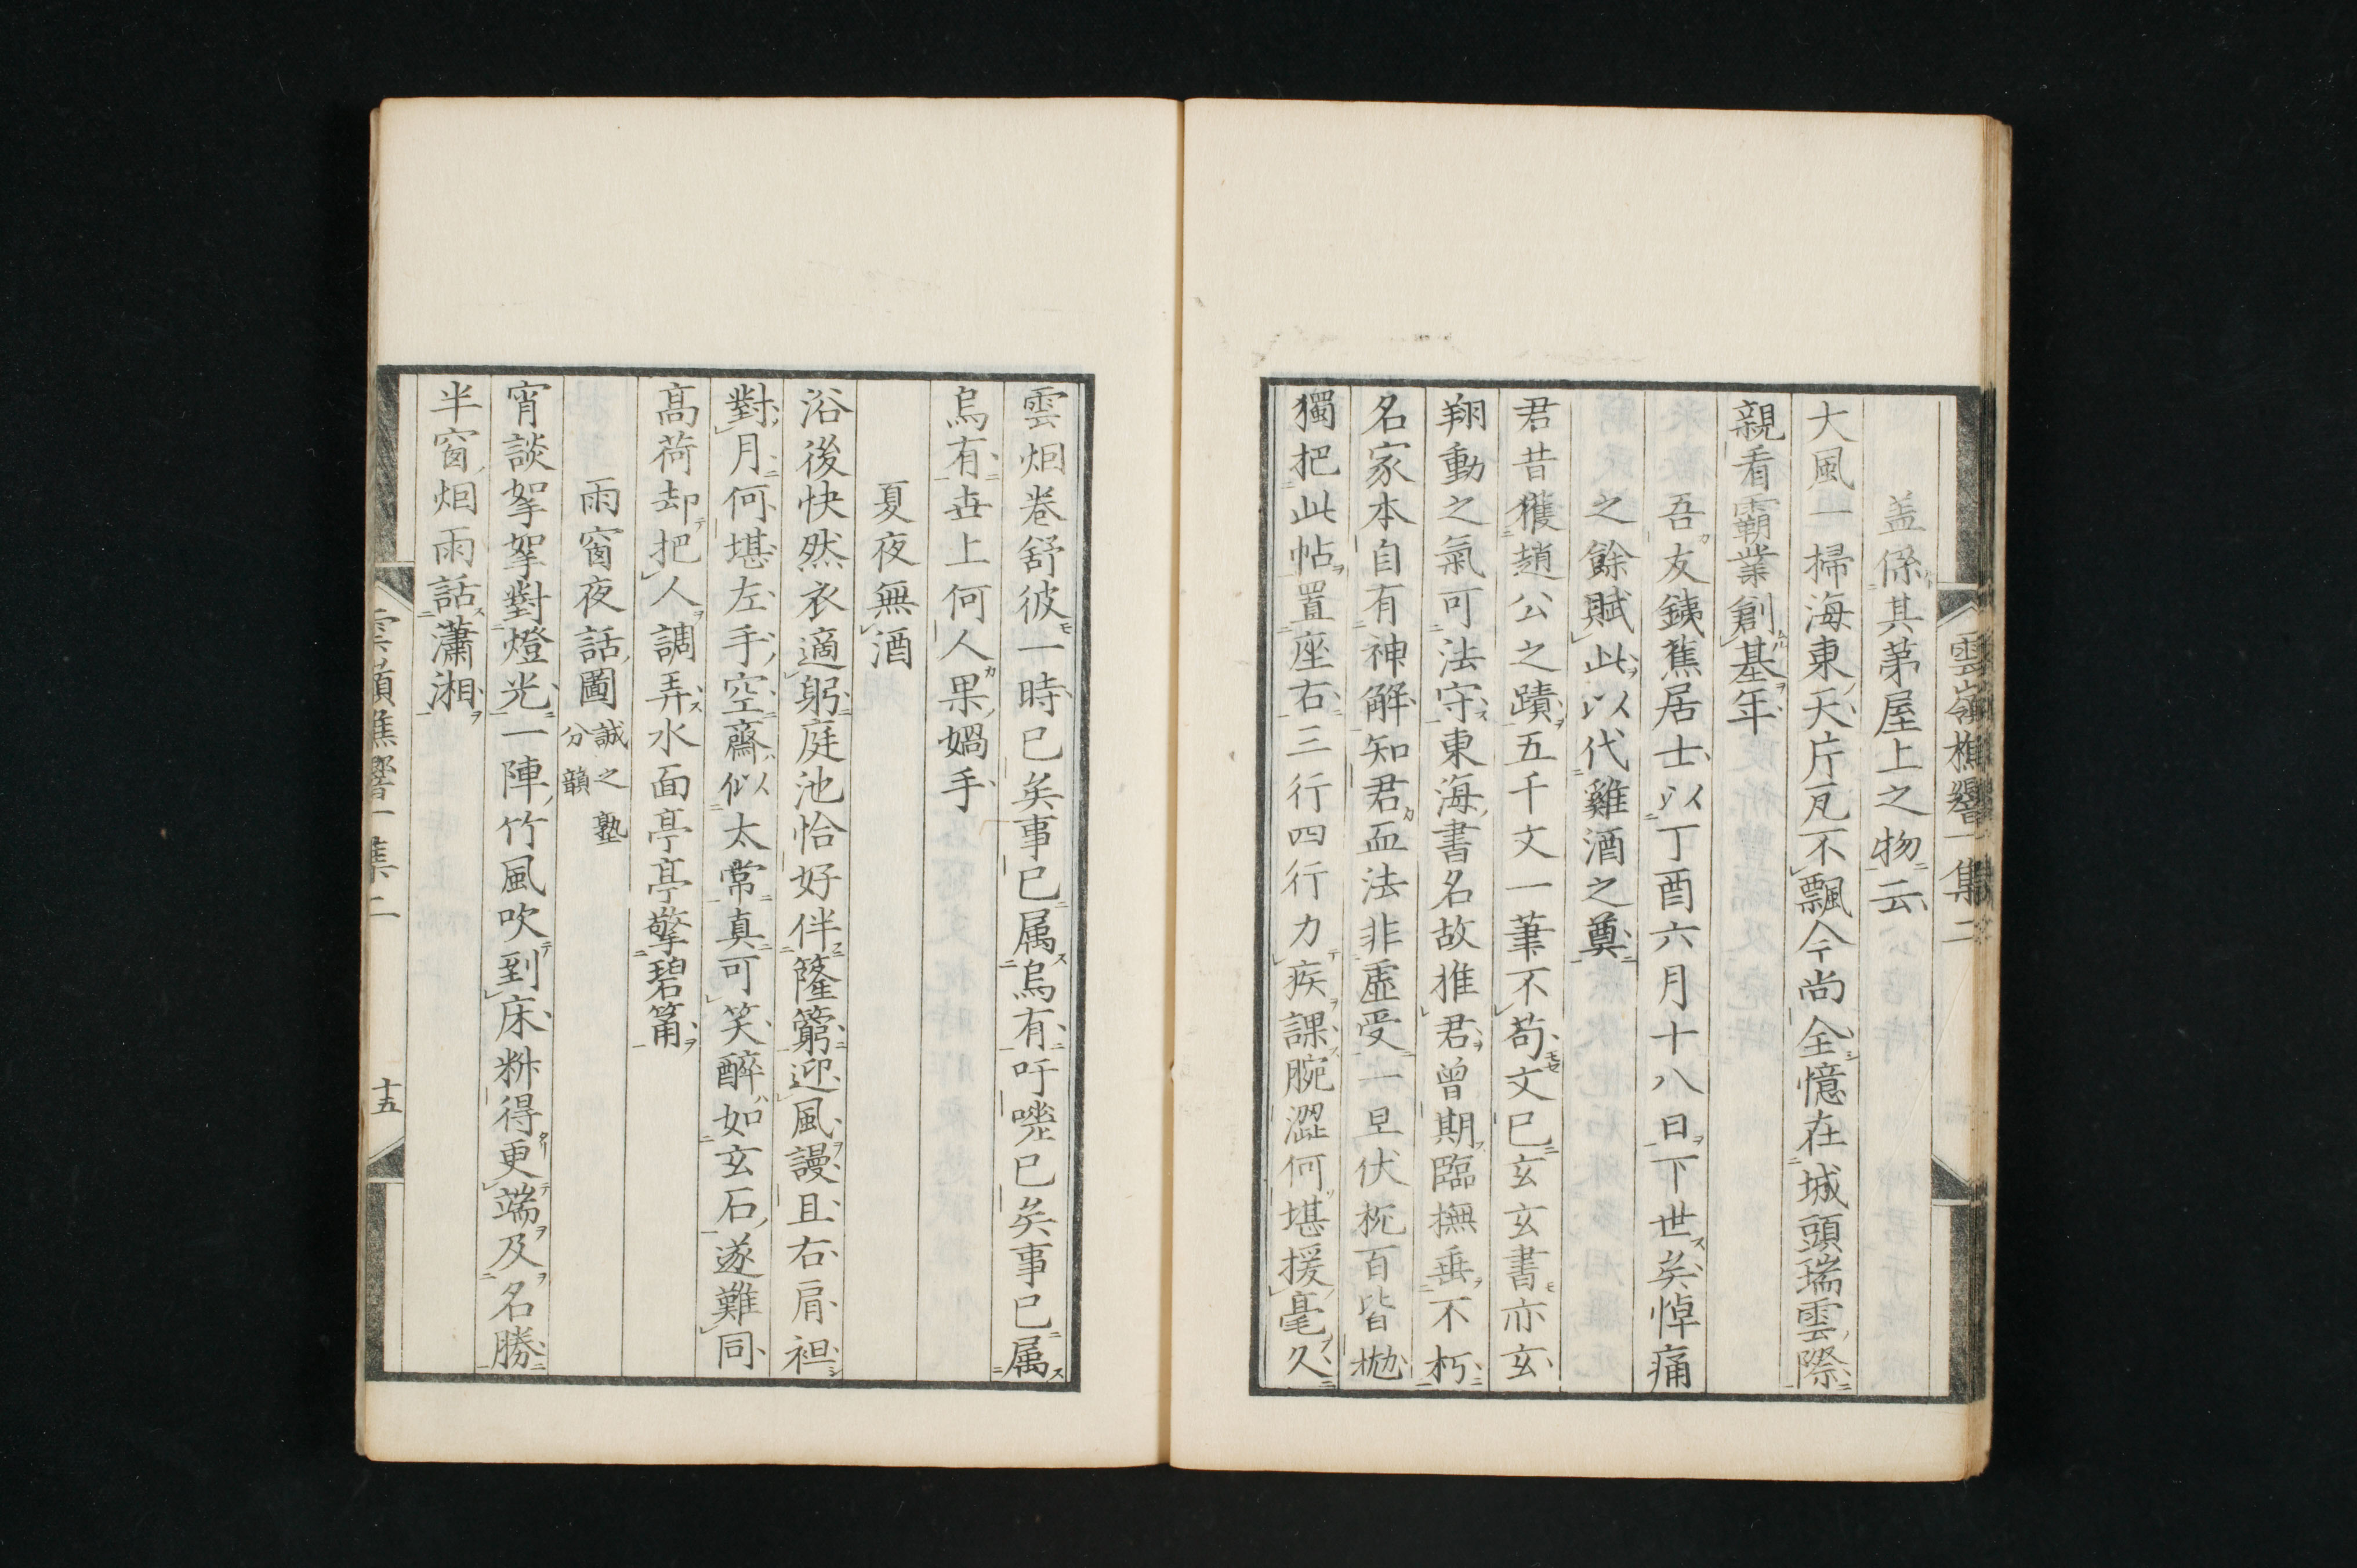 雲嶺樵響一集二
盖係其茅屋上之物云
大風一掃海東天片瓦不飄今尚全憶在城頭瑞雲際
親看霸業創基年
吾友銕蕉居士以丁酉六月十八日下世矣悼痛
之餘賦此以代雞酒之奠
君昔獲趙公之蹟五千文一筆不苟文已玄玄書亦玄
翔動之氣可法守東海書名故推君曾期臨撫垂不朽
名家本自有神解知君血法非虛受一旦伏枕百皆拋
獨把此帖置座右三行四行力疾課腕澀何堪援毫久
雲烟卷舒彼一時已矣事已属烏有吁嗟已矣事已属
烏有世上何人果媧手
夏夜無酒
浴後快然衣適躬庭池恰好伴篷窮迎風謾且右肩袒
對月何堪左手空齋似太常真可笑醉如玄石遂難同
高荷却把人調弄水面亭亭擎碧筩
雨窗夜話圖 誠之塾分韻
宵談挐挐對燈光一陣竹風吹到床料得更端及名勝
半窗烟雨話瀟湘
雲嶺樵響一集二
十五